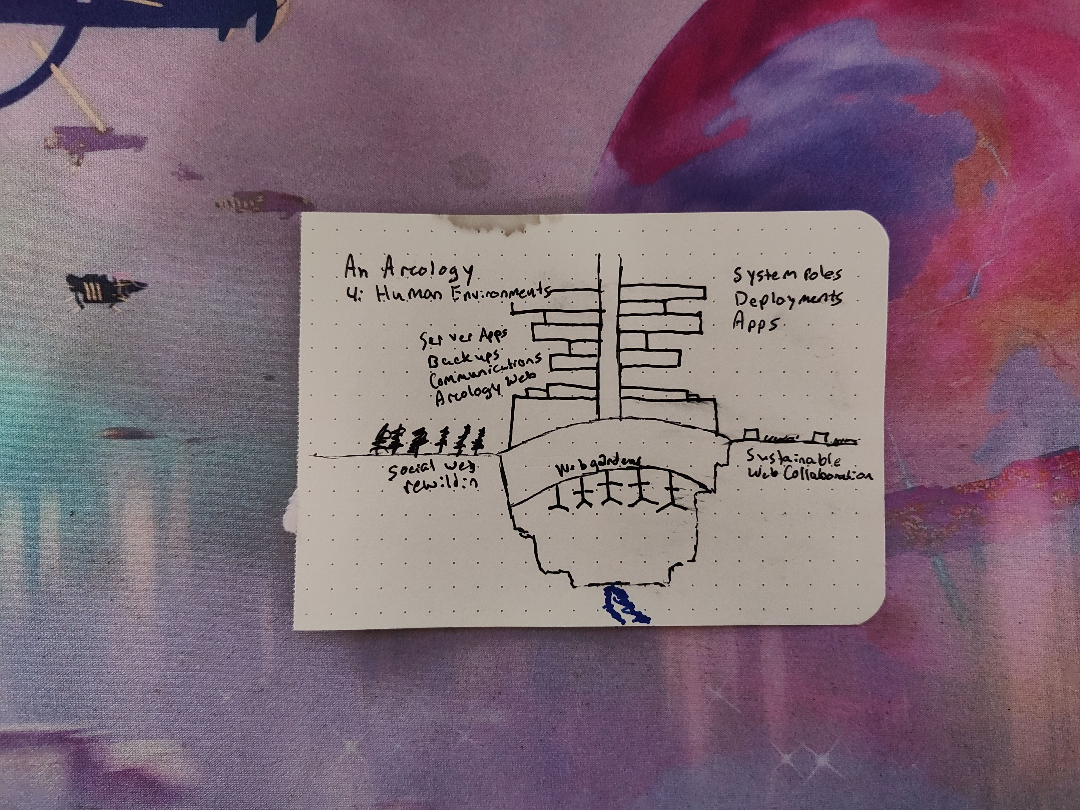 An Arcology
4: Human Environments
System Roles
Deployments
Apps
Server Apps
Backups
Communications
Arcology Web
Social Web
rewildin
Web gardens
Sustainable
Web Collaboration